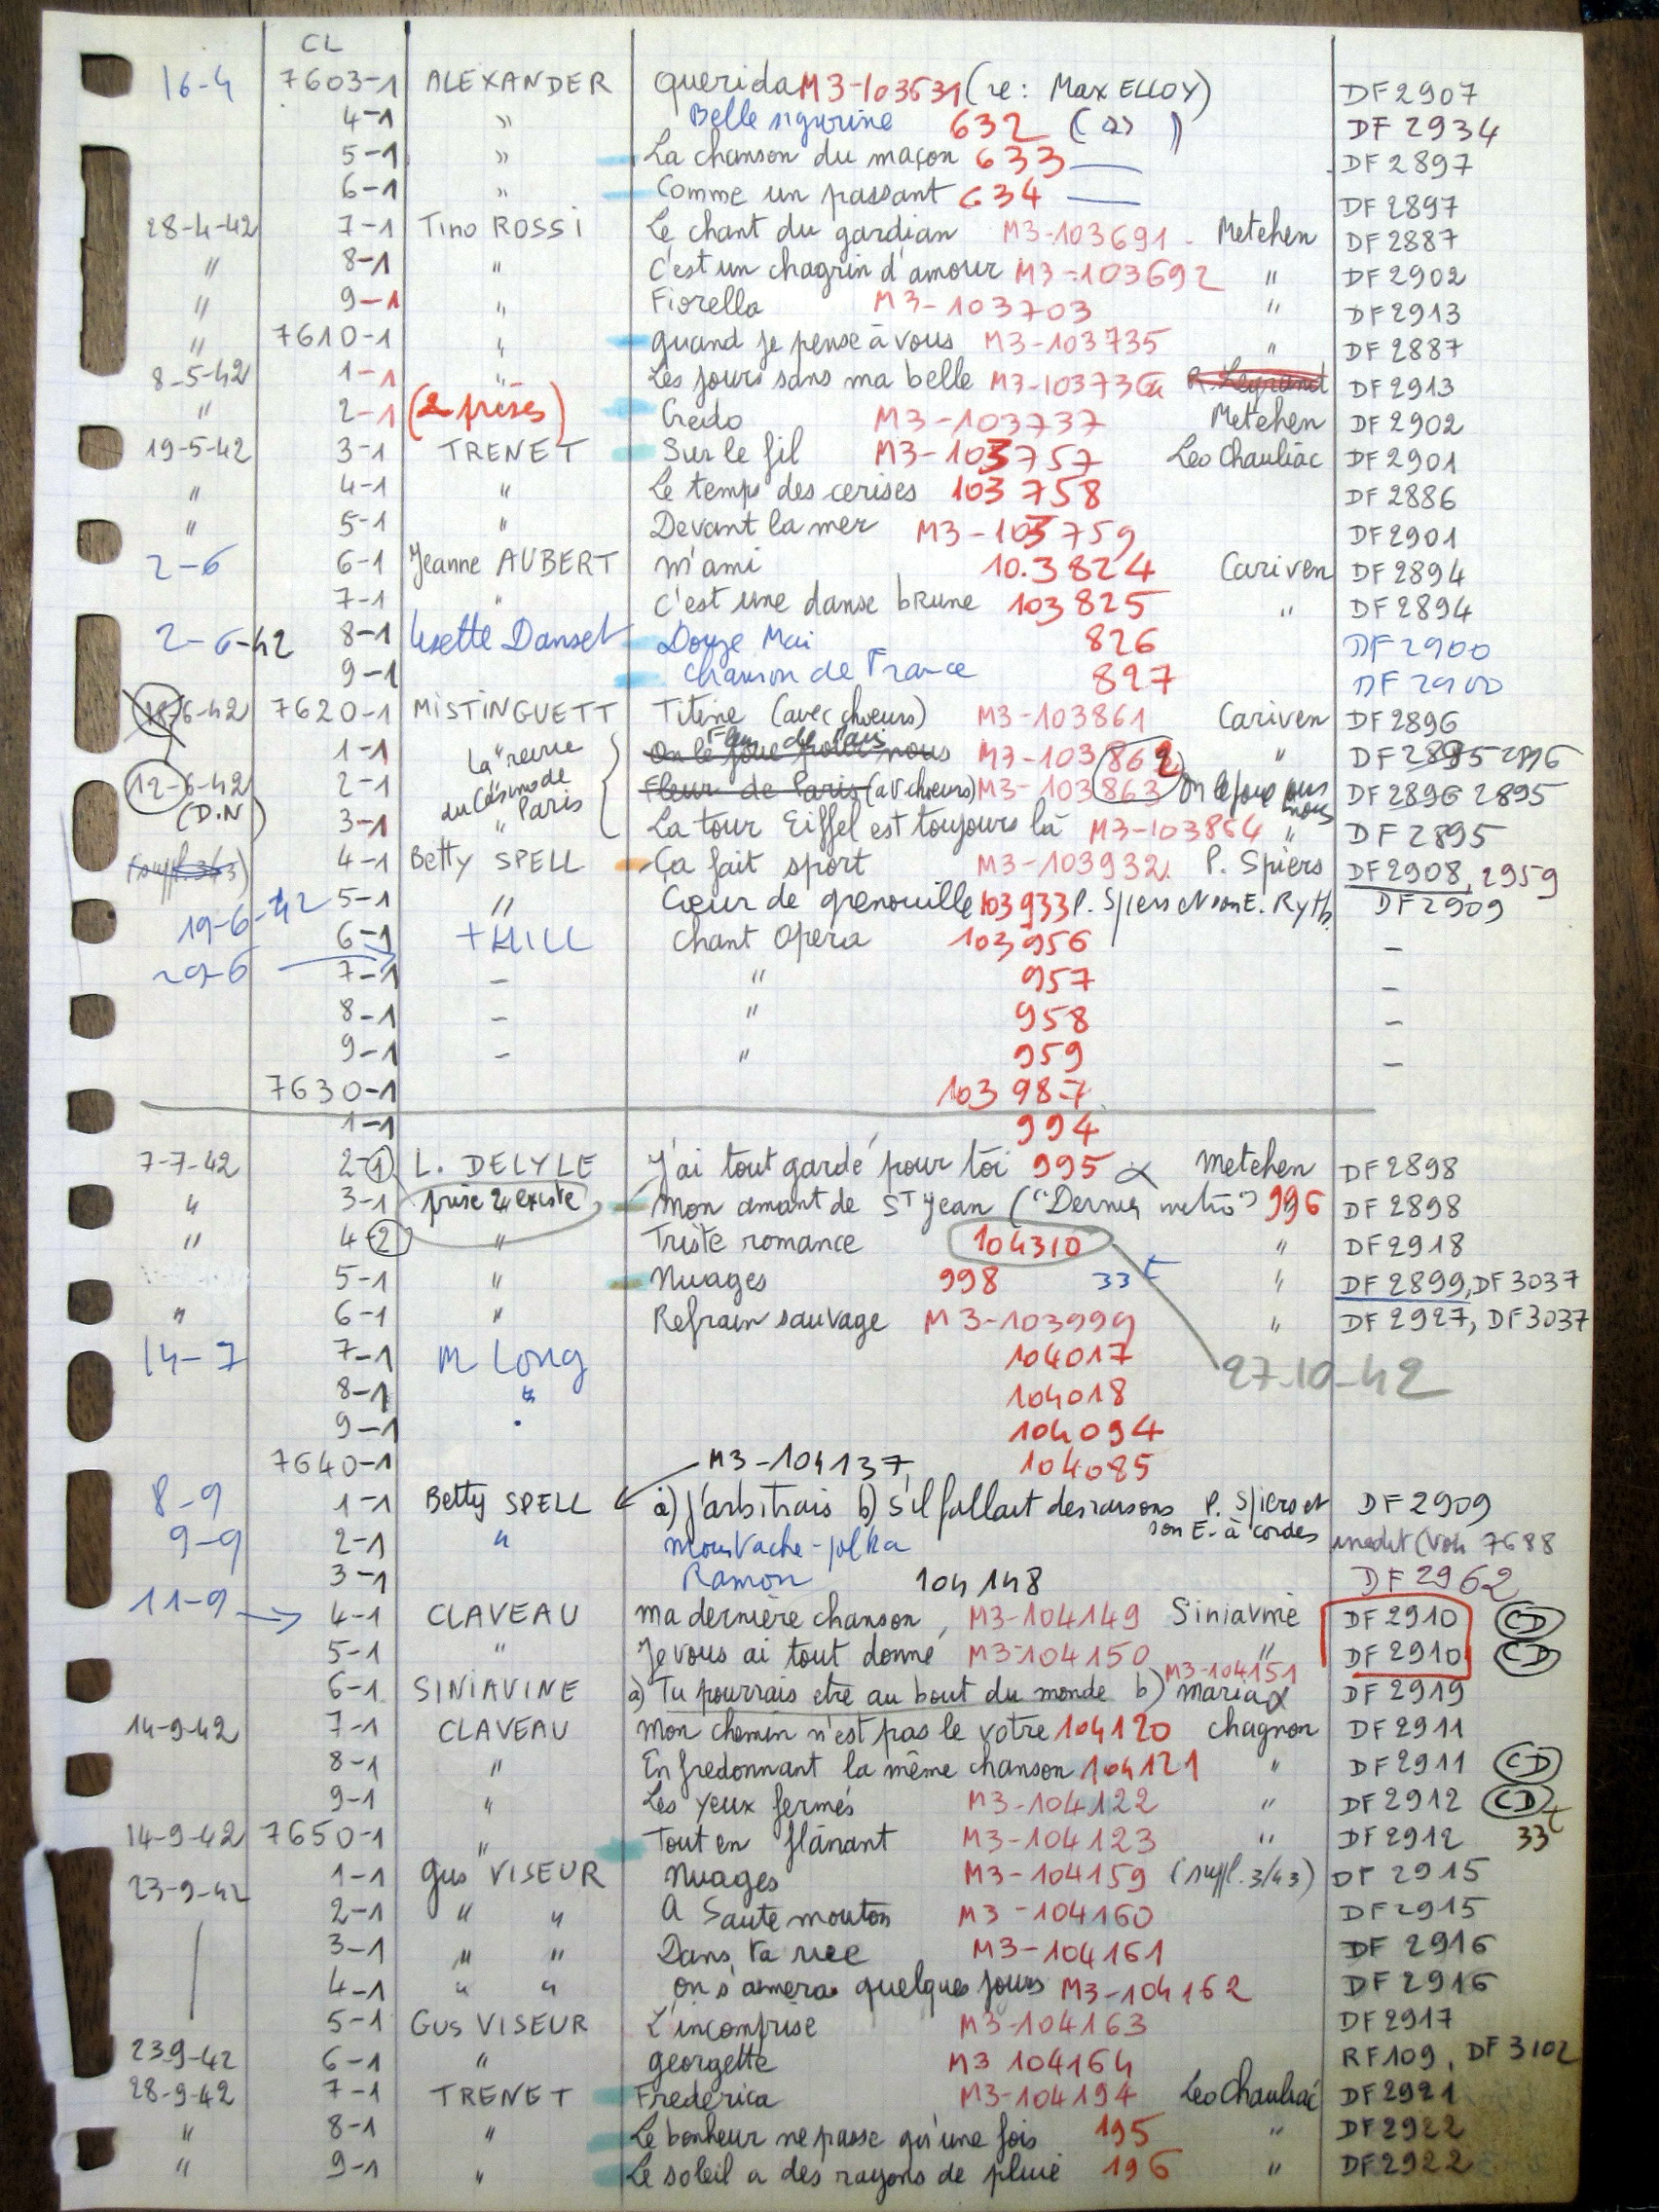 CL
16-4 7603-1 ALEXANDER querida M3-103631 (re: Max ELLOY) DF2907
4-1 " Belle 632 DF 2934
5-1 " La chanson du maçon 633 — DF 2897
6-1 " Comme un passant 634 — DF 2897
28-4-42 7-1 Tino ROSSI Le chant du gardian M3-103691 - Metehen DF 2887
" 8-1 " C'est un chagrin d'amour M3-103692 " DF 2902
" 9-1 " Fiorella M3-103703 " DF 2913
" 7610-1 " quand je pense à vous M3-103735 " DF 2887
8-5-42 1-1 " Les jours sans ma belle M3-103736 R. Legrand DF 2913
" 2-1 (2 prises) Credo M3-103737 Metehen DF 2902
19-5-42 3-1 TRENET Sur le fil M3-103757 Leo Chauliac DF 2901
" 4-1 " Le temps des cerises 103 758 DF 2886
" 5-1 " Devant la mer M3-103759 DF 2901
2-6 6-1 Jeanne AUBERT M'ami 10.3824 Cariven DF 2894
7-1 " C'est une danse brune 103825 " DF 2894
2-6-42 8-1 Lisette Danset Douze Mai 826 DF 2900
9-1 Chanson de France 827 DF 2900
6-42 7620-1 MISTINGUETT Titine (avec choeurs) M3-103861 Cariven DF 2896
1-1 La "revue On le joue pour nous Fleur de Paris M3-103862 " DF 2895 2896
12-6-42 2-1 du Casino de Fleur de Paris (av choeurs) M3-103863 On le joue pour nous DF 2896 2895
(D.N) 3-1 Paris " La tour Eiffel est toujours là M3-103864 " DF 2895
4-1 Betty SPELL Ça fait sport M3-103932 P. Spiers DF 2908, 2959
19-6-42 5-1 " Cœur de grenouille 103933 P. Spiers et son E. Ryth. DF 2909
6-1 + HILL Chant Opera 103956 –
29-6 7-1 – " 957 –
8-1 – " 958 –
9-1 – " 959 –
7630-1 103987
1-1 994
7-7-42 2-1 L. DELYLE J'ai tout gardé pour toi 995 α Metehen DF 2898
" 3-1 prise 2 existe Mon amant de St Jean ("Dernier métro") 996 DF 2898
" 4-2 " Triste romance 104310 " DF 2918
5-1 " Nuages 998 33t " DF 2899, DF 3037
" 6-1 " Refrain sauvage M3-103999 " DF 2927, DF 3037
14-7 7-1 M Long 104017 27-10-42
8-1 " 104018
9-1 " 104094
7640-1 M3-104137 104085
8-9 1-1 Betty SPELL a) J'arbitrais b) S'il fallait des raisons P. Spiers et son E. à cordes DF 2909
9-9 2-1 " Moustache-polka inedit (voir 7688
3-1 Ramon 104148 DF 2962
11-9 → 4-1 CLAVEAU Ma dernière chanson, M3-104149 Siniavine DF 2910 CD
5-1 " Je vous ai tout donné M3-104150 " DF 2910 CD
6-1 SINIAVINE a) Tu pourrais etre au bout du monde b) Maria α M3-104151 DF 2919
14-9-42 7-1 CLAVEAU Mon chemin n'est pas le votre 104120 Chagnon DF 2911
8-1 " En fredonnant la même chanson 104121 " DF 2911 CD
9-1 " Les yeux fermés M3-104122 " DF 2912 CD
14-9-42 7650-1 " Tout en flânant M3-104123 " DF 2912 33t
23-9-42 1-1 Gus VISEUR Nuages M3-104159 (suppl. 3/43) DF 2915
2-1 " " A Saute mouton M3-104160 DF 2915
3-1 " " Dans ta rue M3-104161 DF 2916
4-1 " " On s'aimera quelques jours M3-104162 DF 2916
5-1 Gus VISEUR L'incomprise M3-104163 DF 2917
23.9-42 6-1 " Georgette M3 104164 RF109, DF 3102
28-9-42 7-1 TRENET Frederica M3-104194 Leo Chauliac DF 2921
" 8-1 " Le bonheur ne passe qu'une fois 195 " DF 2922
" 9-1 " Le soleil a des rayons de pluie 196 " DF 2922